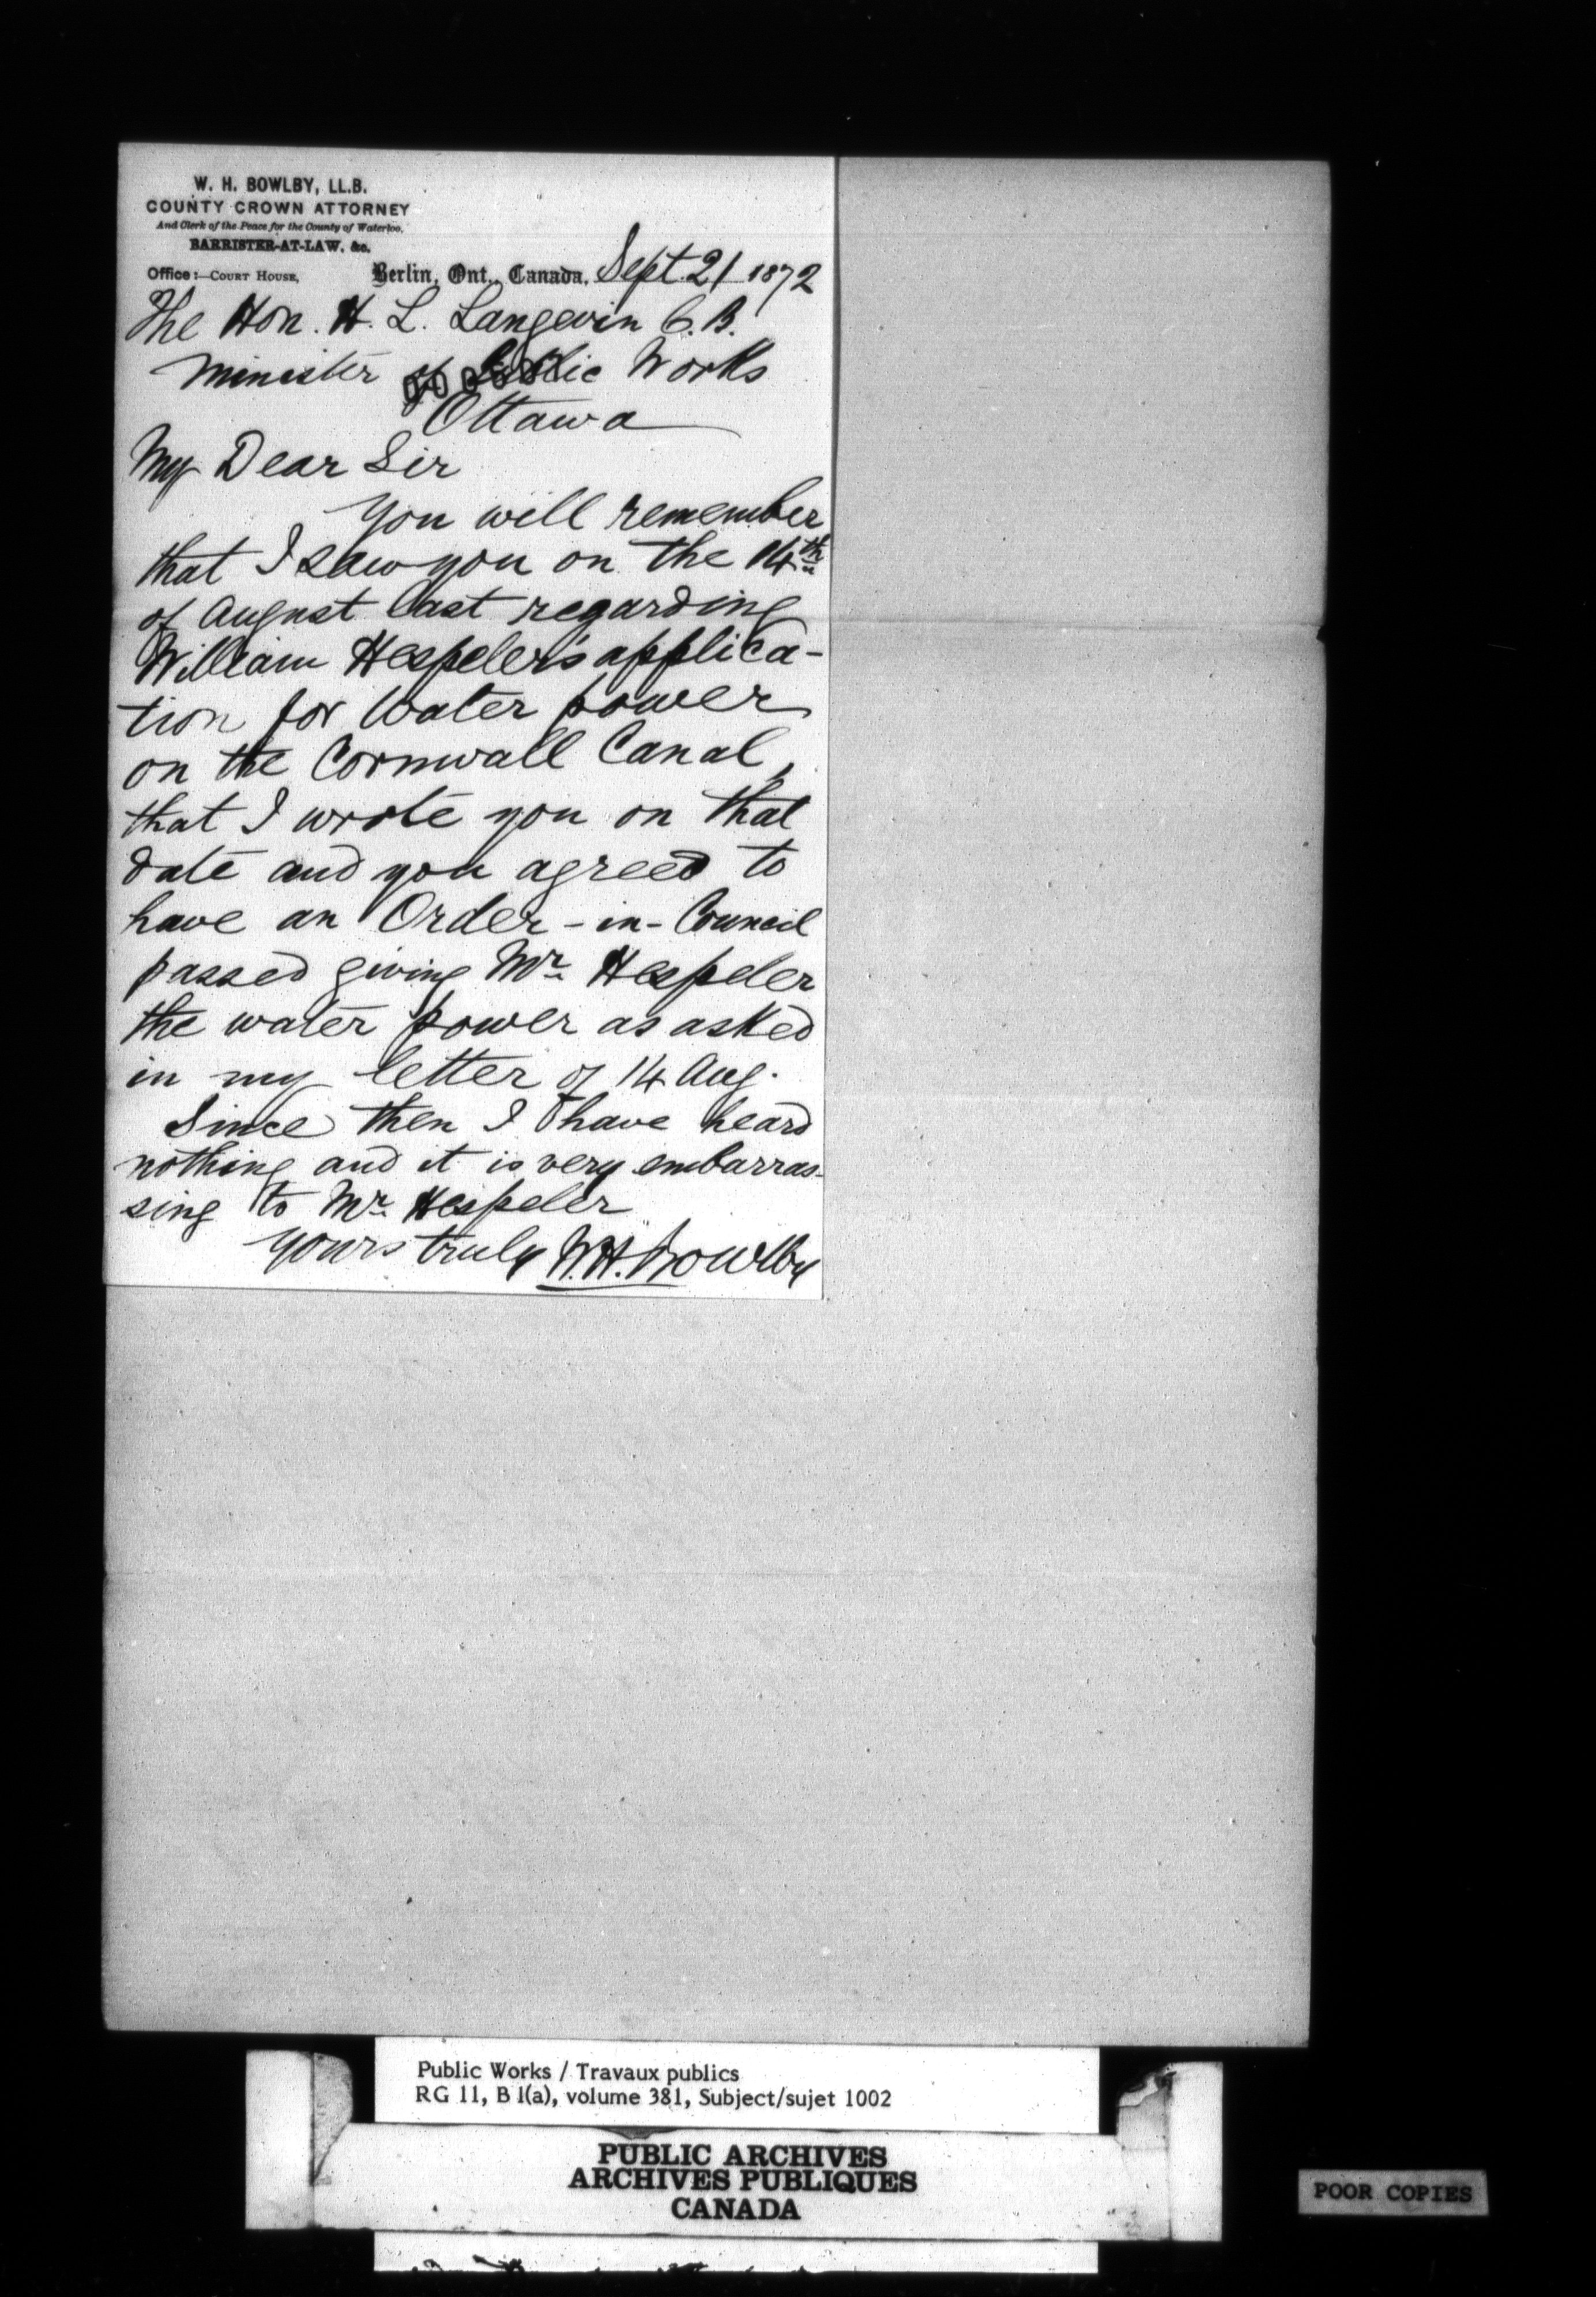 W. H. BOWLBY, LL.B.
COUNTY CROWN ATTORNEY
And Clerk of the Peace for the County of Waterloo,
BARRISTER-AT-LAW, &c.
Office:—COURT HOUSE, Berlin, Ont., Canada, Sept. 21 1872
The Hon. H. L. Langevin C.B.
Minister of Public Works
Ottawa
My Dear Sir
You will remember
that I saw you on the 14th
of August last regarding
William Hespeler's applica-
tion for water power
on the Cornwall Canal,
that I wrote you on that
date and you agreed to
have an Order-in-Council
passed giving Mr. Hespeler
the water power as asked
in my letter of 14 Aug.
Since then I have heard
nothing and it is very embarras-
sing to Mr. Hespeler
Yours truly W.H. Bowlby
Public Works / Travaux publics
RG 11, B 1(a), volume 381, Subject/sujet 1002
PUBLIC ARCHIVES
ARCHIVES PUBLIQUES
CANADA
POOR COPIES